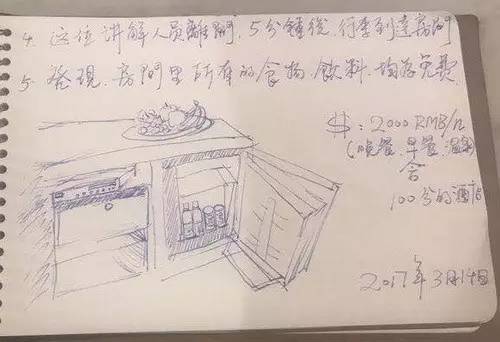 4. 这位讲解人员離開, 5分鍾後, 行李到達房間
5. 發現, 房間里所有的食物、飲料, 均為免費
$: 2000 RMB/n
(晚餐、早餐、溫泉)
含
100分的酒店
2017年3月14日